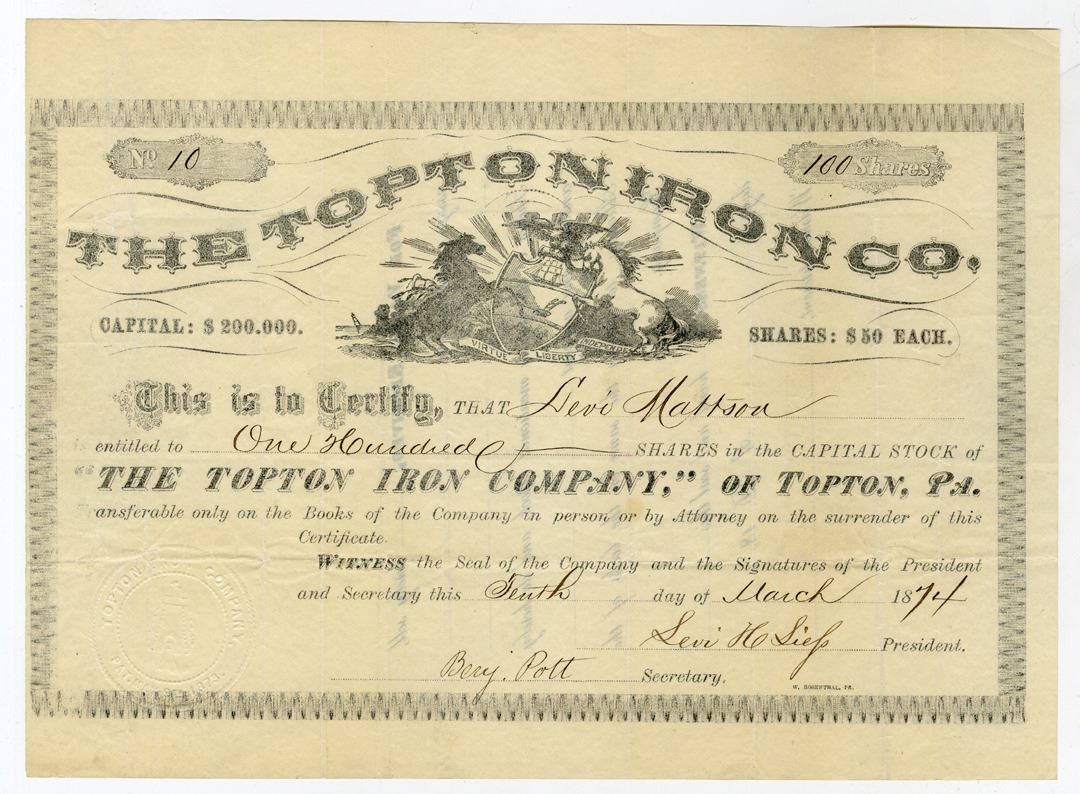 No 10
100 Shares
THE TOPTON IRON CO.
CAPITAL: $200.000.
SHARES: $50 EACH.
VIRTUE LIBERTY INDEPENDE
This is to Certify, THAT Levi Mattson
is entitled to One Hundred SHARES in the CAPITAL STOCK of
"THE TOPTON IRON COMPANY," OF TOPTON, PA.
Transferable only on the Books of the Company in person or by Attorney on the surrender of this
Certificate.
WITNESS the Seal of the Company and the Signatures of the President
and Secretary this Tenth day of March 1874
Levi H President.
Benj. Pott Secretary.
W. ROSENTHAL, PR.
TOPTON COMPANY